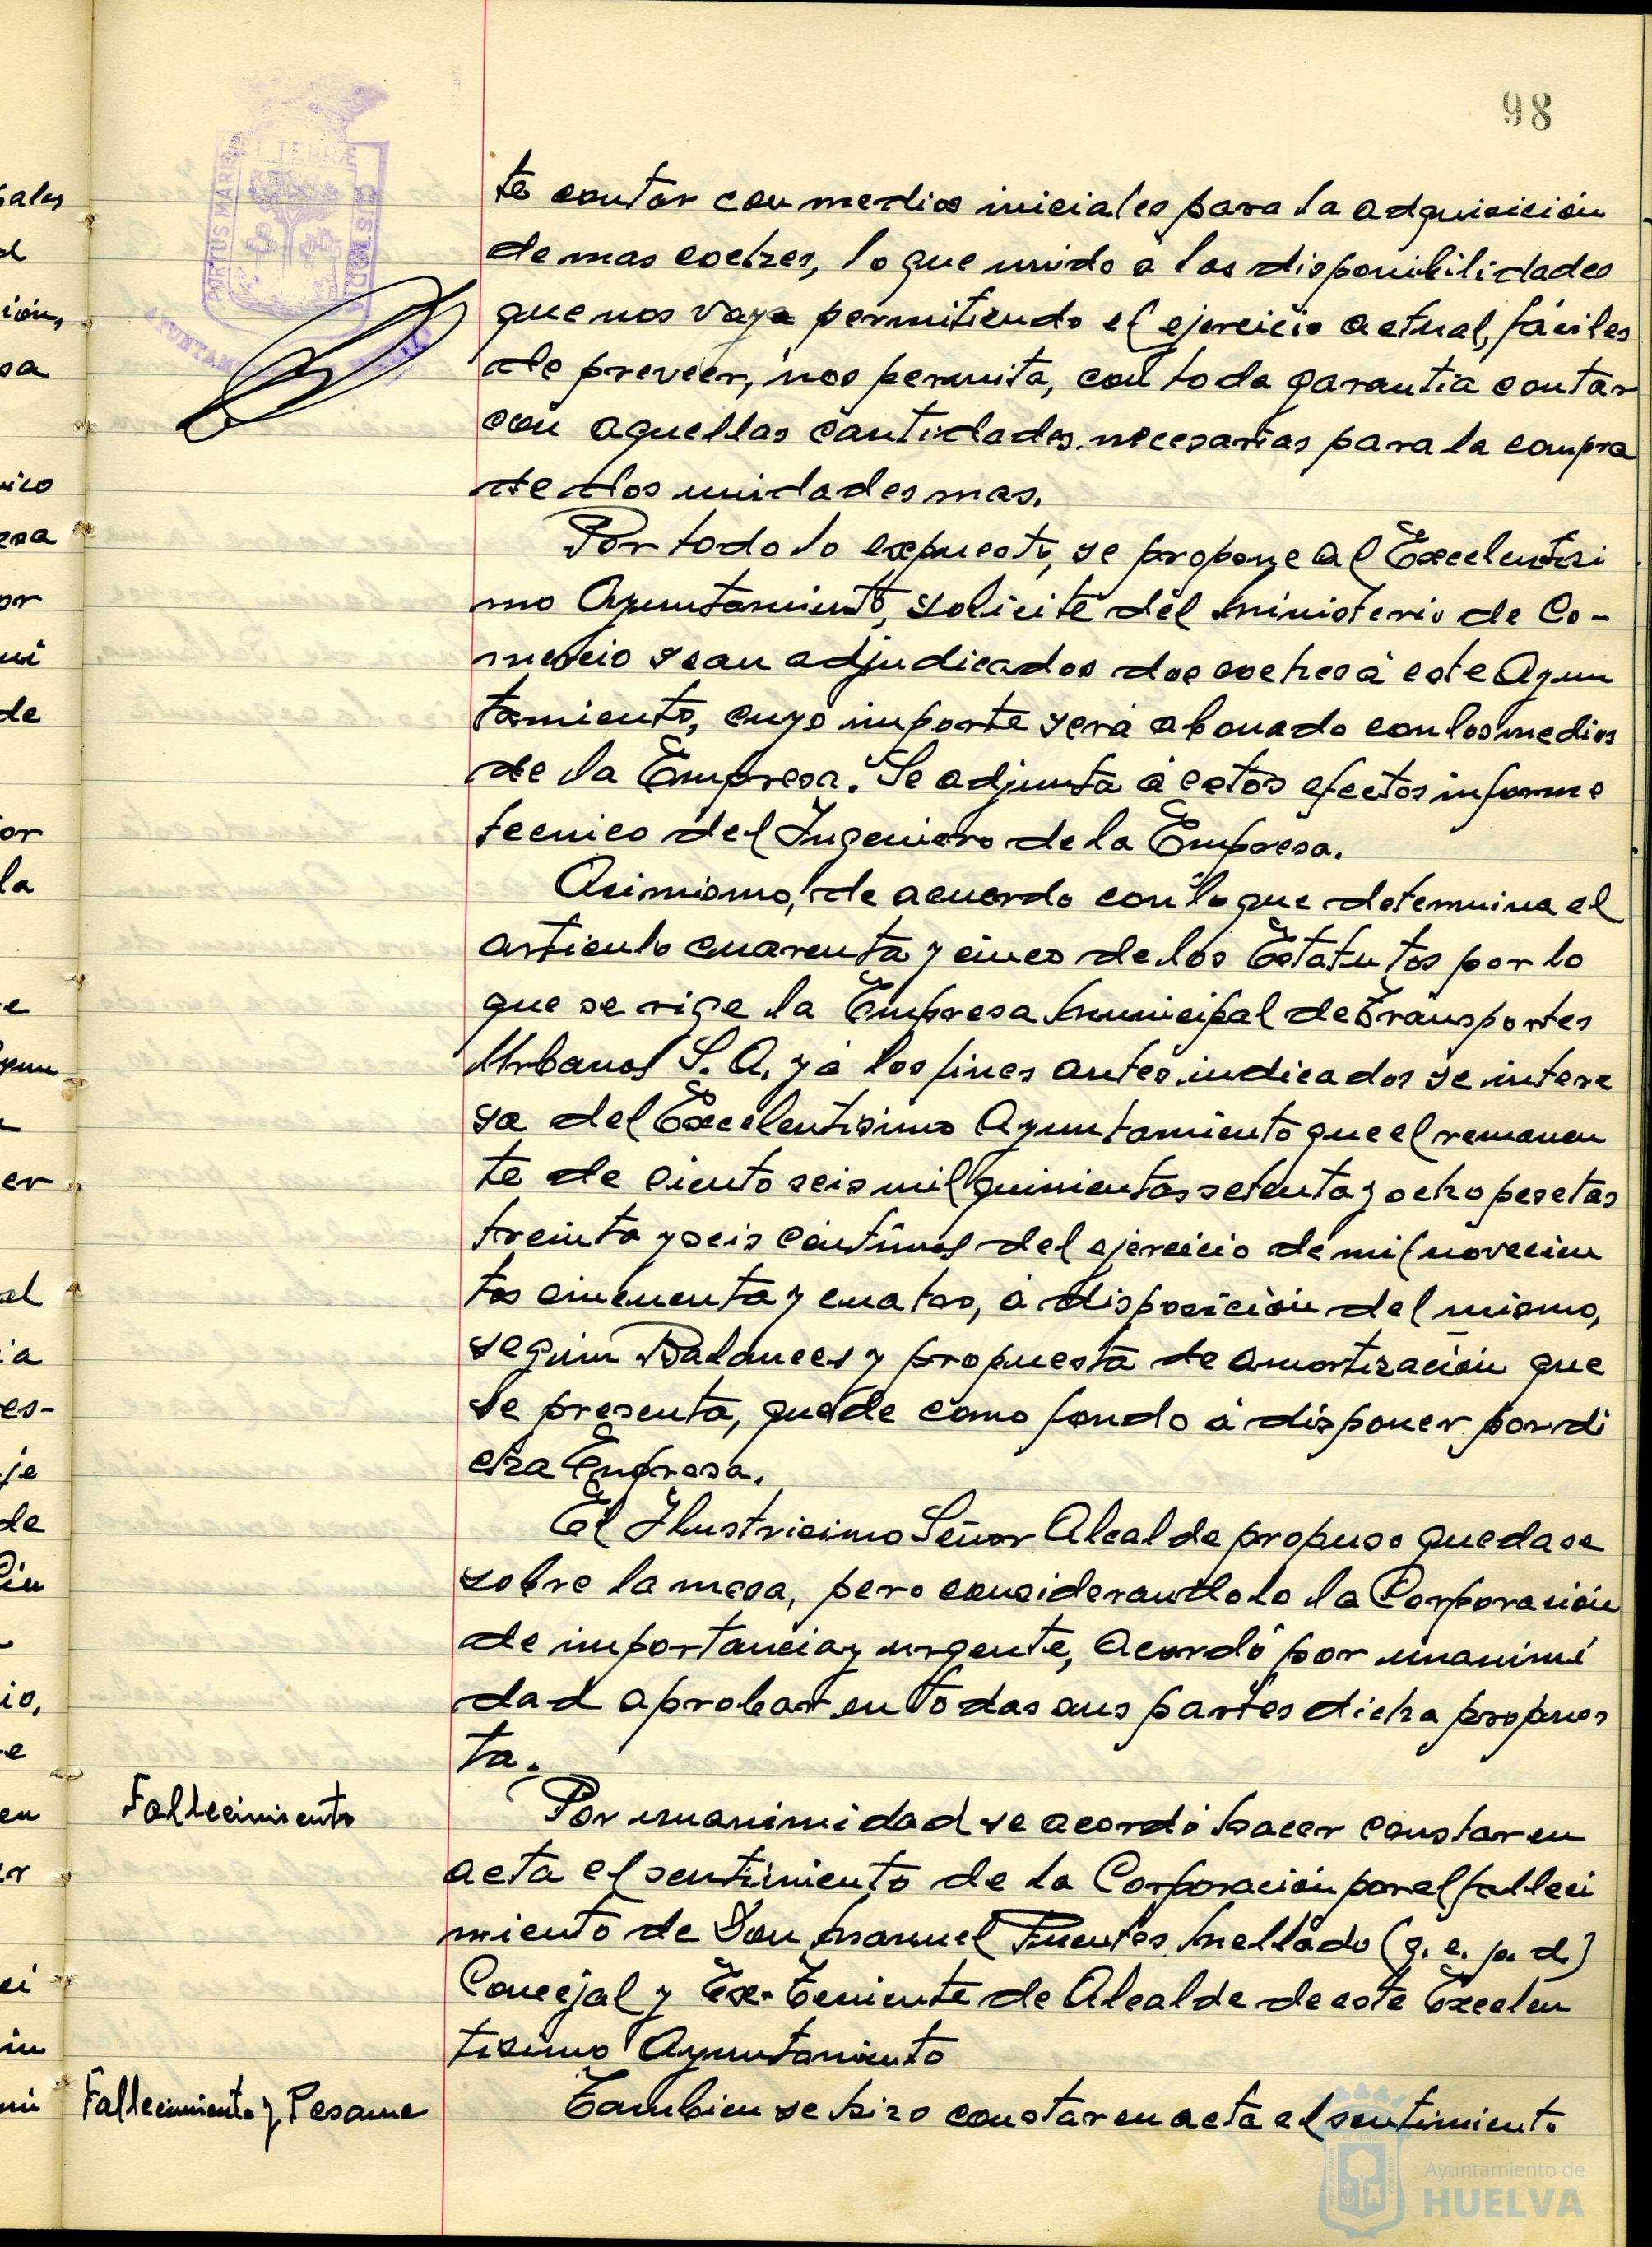 98
te contar con medios iniciales para la adquisición
de mas coches, lo que unido a las disponibilidades
que nos vaya permitiendo el ejercicio actual, fáciles
de preveer, nos permita, con toda garantia contar
con aquellas cantidades necesarias para la compra
de dos unidades mas.
Por todo lo expuesto, se propone al Excelentisi
mo Ayuntamiento, solicite del Ministerio de Co-
mercio sean adjudicados dos coches a este Ayun
tamiento, cuyo importe será abonado con los medios
de la Empresa. Se adjunta a estos efectos informe
tecnico del Ingeniero de la Empresa.
Asimismo, de acuerdo con lo que determina el
articulo cuarenta y cinco de los Estatutos por lo
que se rige la Empresa Municipal de Transportes
Urbanos S. A. y a los fines antes indicados se intere
sa del Excelentisimo Ayuntamiento que el remanen
te de ciento seis mil quinientas setenta y ocho pesetas
treinta y seis centimos del ejercicio de mil novecien
tos cincuenta y cuatro, a disposición del mismo,
según Balances y propuesta de amortización que
se presenta, quede como fondo a disponer por di
cha Empresa.
El Ilustrisimo Señor Alcalde propuso quedase
sobre la mesa, pero considerandolo la Corporación
de importancia y urgente, acordó por unanimi
dad aprobar en todas sus partes dicha propues
ta.
Fallecimiento
Por unanimidad se acordó hacer constar en
acta el sentimiento de la Corporación por el falleci
miento de Don Manuel Fuentes Mellado (q. e. p. d)
Concejal y Ex-Teniente de Alcalde de este Excelen
tisimo Ayuntamiento
Fallecimiento y Pesame
Tambien se hizo constar en acta el sentimiento
Ayuntamiento de
HUELVA